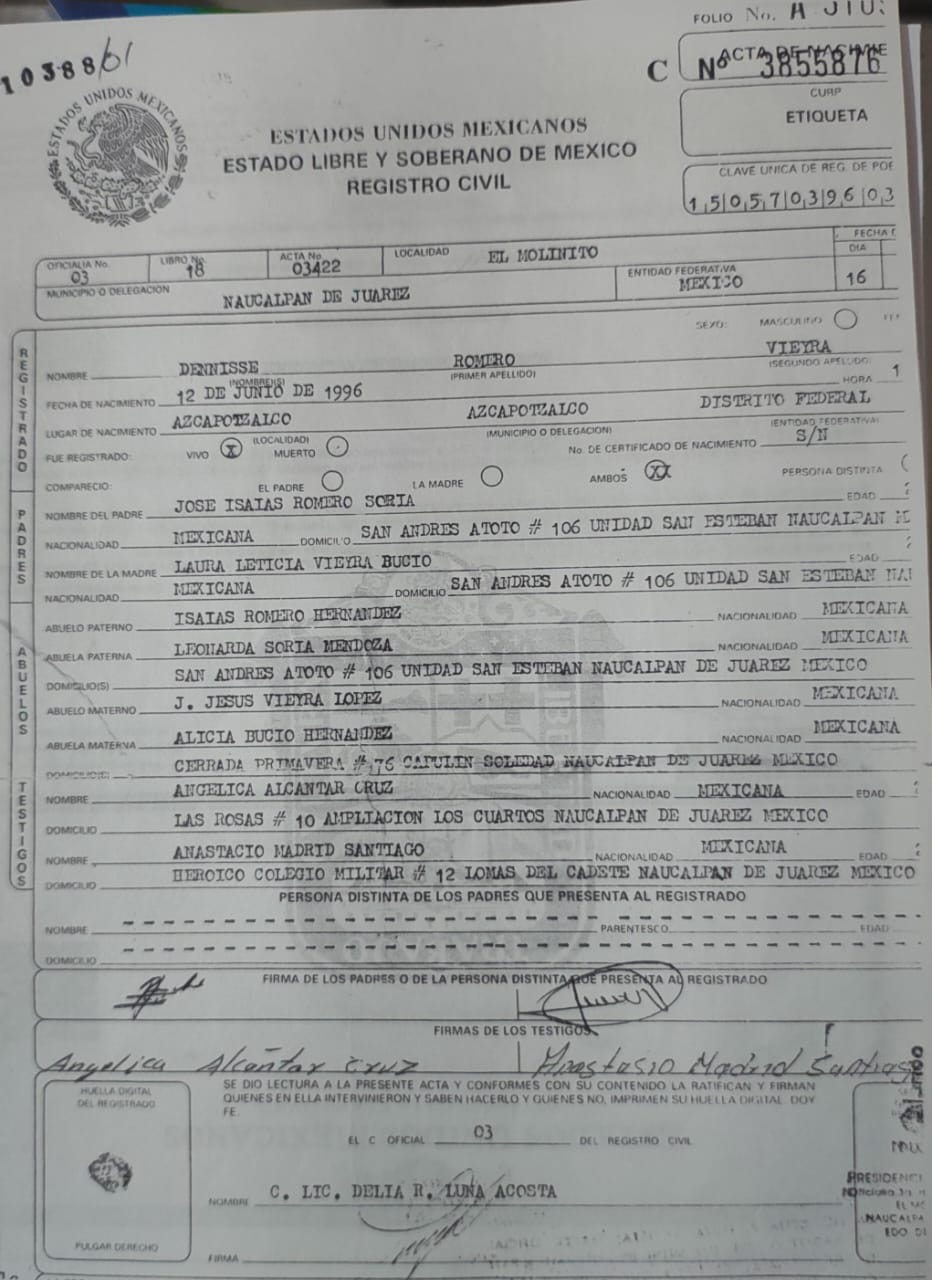 FOLIO No. A
10388/01
ACTA DE NACIMIE
C Nº 3855876
CURP
ETIQUETA
ESTADOS UNIDOS MEXICANOS
ESTADOS UNIDOS MEXICANOS
ESTADO LIBRE Y SOBERANO DE MEXICO
REGISTRO CIVIL
CLAVE UNICA DE REG. DE POB
1 5 0 5 7 0 3 9 6 0 3
OFICIALIA No. 03 LIBRO No. 18 ACTA No. 03422 LOCALIDAD EL MOLINITO FECHA
DIA 16
MUNICIPIO O DELEGACION NAUCALPAN DE JUAREZ ENTIDAD FEDERATIVA MEXICO
REGISTRADO
SEXO: MASCULINO
NOMBRE DENNISSE ROMERO VIEYRA
(NOMBRE(S) (PRIMER APELLIDO) (SEGUNDO APELLIDO)
FECHA DE NACIMIENTO 12 DE JUNIO DE 1996 HORA 1
LUGAR DE NACIMIENTO AZCAPOTZALCO AZCAPOTZALCO DISTRITO FEDERAL
(LOCALIDAD) (MUNICIPIO O DELEGACION) (ENTIDAD FEDERATIVA)
FUE REGISTRADO: VIVO X MUERTO No. DE CERTIFICADO DE NACIMIENTO S/N
COMPARECIO: EL PADRE LA MADRE AMBOS XX PERSONA DISTINTA
PADRES
NOMBRE DEL PADRE JOSE ISAIAS ROMERO SORIA EDAD
NACIONALIDAD MEXICANA DOMICILIO SAN ANDRES ATOTO # 106 UNIDAD SAN ESTEBAN NAUCALPAN
NOMBRE DE LA MADRE LAURA LETICIA VIEYRA BUCIO EDAD
NACIONALIDAD MEXICANA DOMICILIO SAN ANDRES ATOTO # 106 UNIDAD SAN ESTEBAN NAU
ABUELOS
ABUELO PATERNO ISAIAS ROMERO HERNANDEZ NACIONALIDAD MEXICANA
ABUELA PATERNA LEONARDA SORIA MENDOZA NACIONALIDAD MEXICANA
DOMICILIO(S) SAN ANDRES ATOTO # 106 UNIDAD SAN ESTEBAN NAUCALPAN DE JUAREZ MEXICO
ABUELO MATERNO J. JESUS VIEYRA LOPEZ NACIONALIDAD MEXICANA
ABUELA MATERNA ALICIA BUCIO HERNANDEZ NACIONALIDAD MEXICANA
DOMICILIO(S) CERRADA PRIMAVERA # 76 CAPULIN SOLEDAD NAUCALPAN DE JUAREZ MEXICO
TESTIGOS
NOMBRE ANGELICA ALCANTAR CRUZ NACIONALIDAD MEXICANA EDAD
DOMICILIO LAS ROSAS # 10 AMPLIACION LOS CUARTOS NAUCALPAN DE JUAREZ MEXICO
NOMBRE ANASTACIO MADRID SANTIAGO NACIONALIDAD MEXICANA EDAD
DOMICILIO HEROICO COLEGIO MILITAR # 12 LOMAS DEL CADETE NAUCALPAN DE JUAREZ MEXICO
PERSONA DISTINTA DE LOS PADRES QUE PRESENTA AL REGISTRADO
NOMBRE PARENTESCO EDAD
DOMICILIO
FIRMA DE LOS PADRES O DE LA PERSONA DISTINTA QUE PRESENTA AL REGISTRADO
FIRMAS DE LOS TESTIGOS
Angelica Alcántar Cruz Anastasio Madrid Santiag
HUELLA DIGITAL
DEL REGISTRADO
SE DIO LECTURA A LA PRESENTE ACTA Y CONFORMES CON SU CONTENIDO LA RATIFICAN Y FIRMAN
QUIENES EN ELLA INTERVINIERON Y SABEN HACERLO Y QUIENES NO, IMPRIMEN SU HUELLA DIGITAL. DOY
FE.
EL C OFICIAL 03 DEL REGISTRO CIVIL
NOMBRE C. LIC. DELIA R. LUNA ACOSTA
PULGAR DERECHO
FIRMA
PRESIDENCI
NAUCALPA
EDO